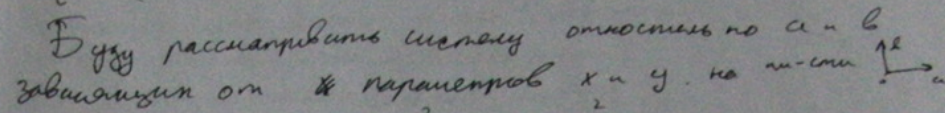 Буду рассматривать систему относительно a и b
зависящих от параметров x и y на пл-сти b a